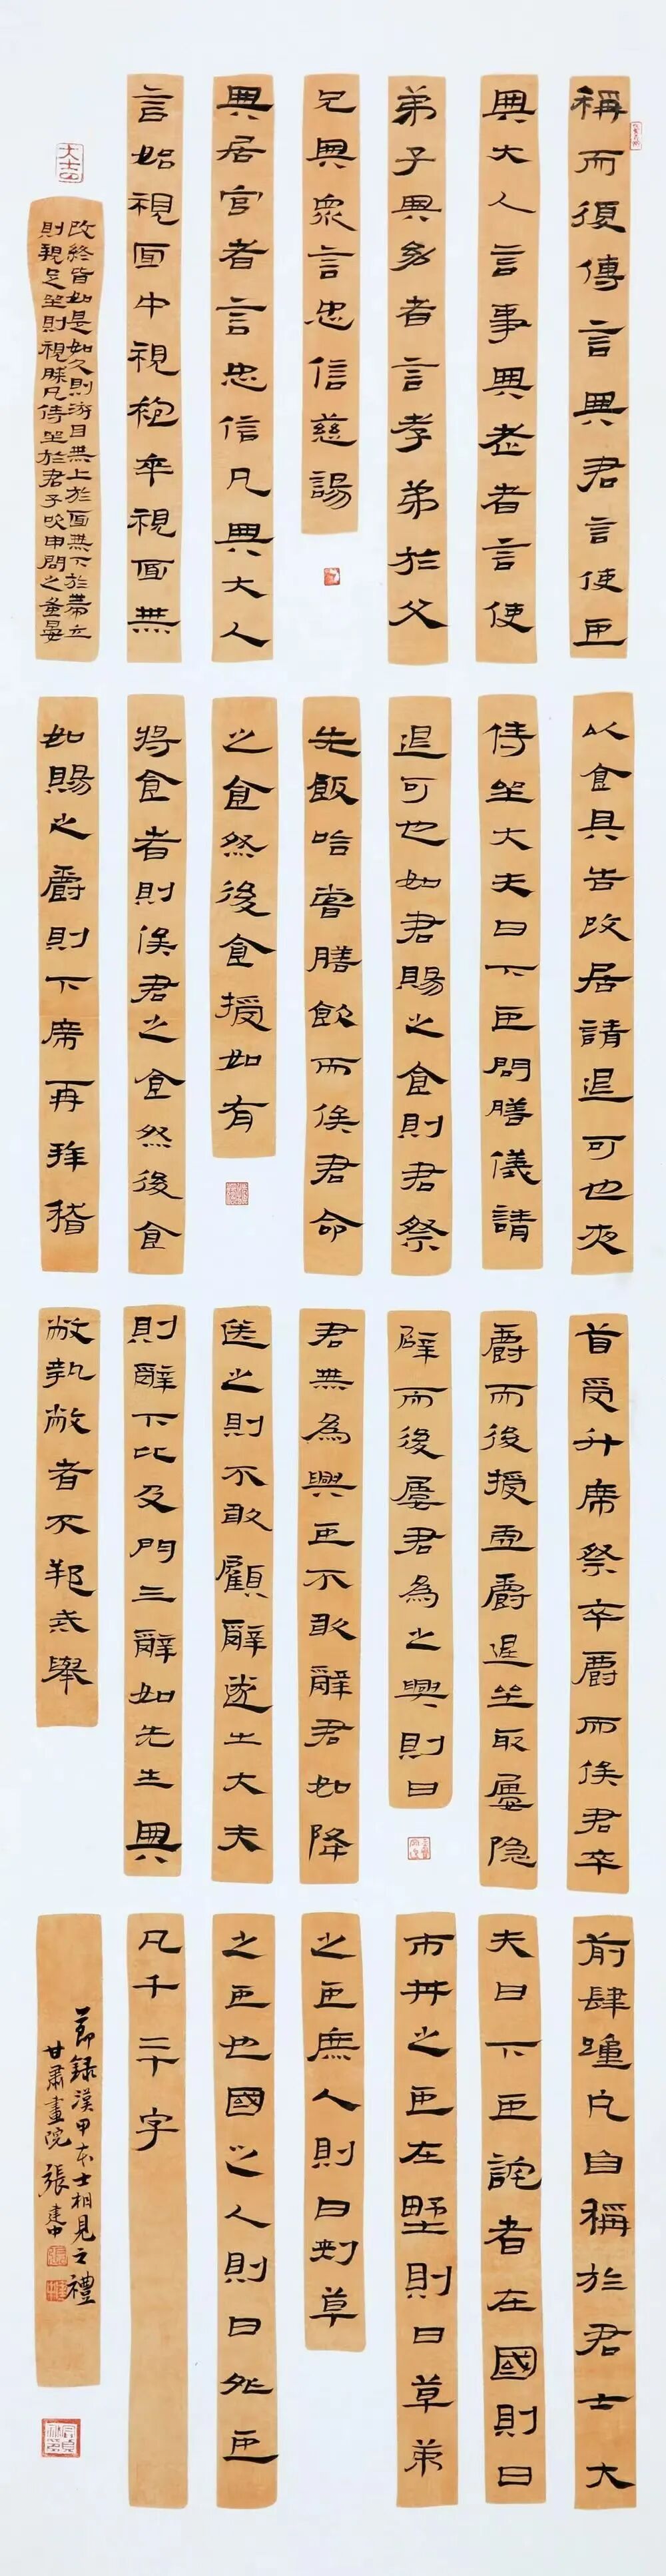 稱而復傳言與君言使臣
與大人言事與老者言使
弟子與幼者言孝弟於父
兄與眾言忠信慈諹
與居官者言忠信凡與大人
言始視面中視袍卒視面無
改終皆如是如父則游目無上於面無下於帶立
則視足坐則視膝凡侍坐於君子欠申問之蚤晏
以食具告改居請退可也夜
侍坐大夫曰下臣問膳儀請
退可也如君賜之食則君祭
先飯嘗膳飲而俟君命
之食然後食授如有
將食者則俟君之食然後食
如賜之爵則下席再拜稽
首受升席祭卒爵而俟君卒
爵而後授虛爵退坐取屨隱
辟而後屨君為之興則曰
君無為興臣不敢辭君如降
送之則不敢顧辭遂士大夫
則辭下比及門三辭如先生與
敝執敝者不  舉
前肆踵凡自稱於君士大
夫曰下臣詫者在國則曰
市井之臣在野則曰草茅
之臣庶人則曰刺草
之臣也國之人則曰外臣
凡千二十字
節錄漢甲本士相見之禮
甘肅畫院張建中